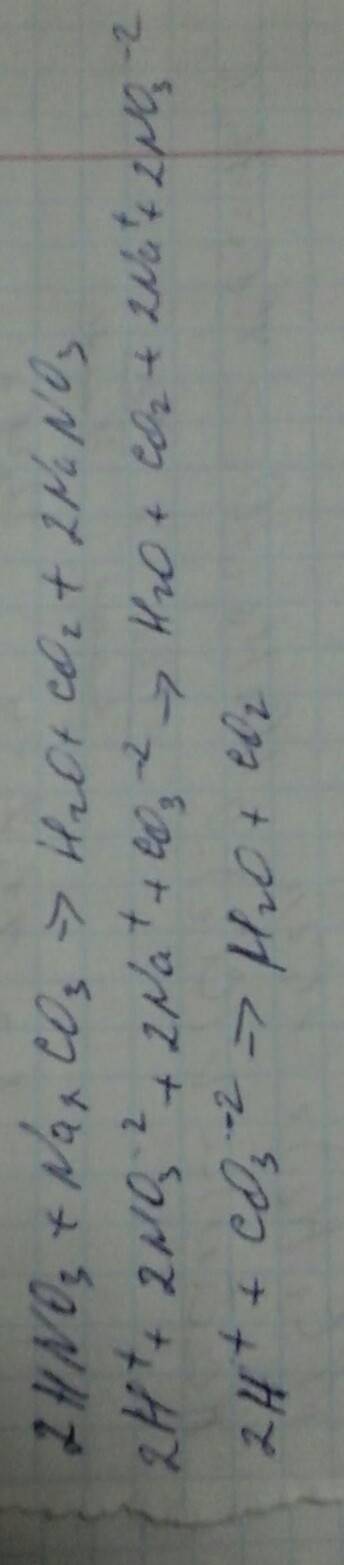 2HNO₃ + Na₂CO₃ => H₂O + CO₂ + 2NaNO₃
2H⁺ + 2NO₃⁻² + 2Na⁺ + CO₃⁻² => H₂O + CO₂ + 2Na⁺ + 2NO₃⁻²
2H⁺ + CO₃⁻² => H₂O + CO₂